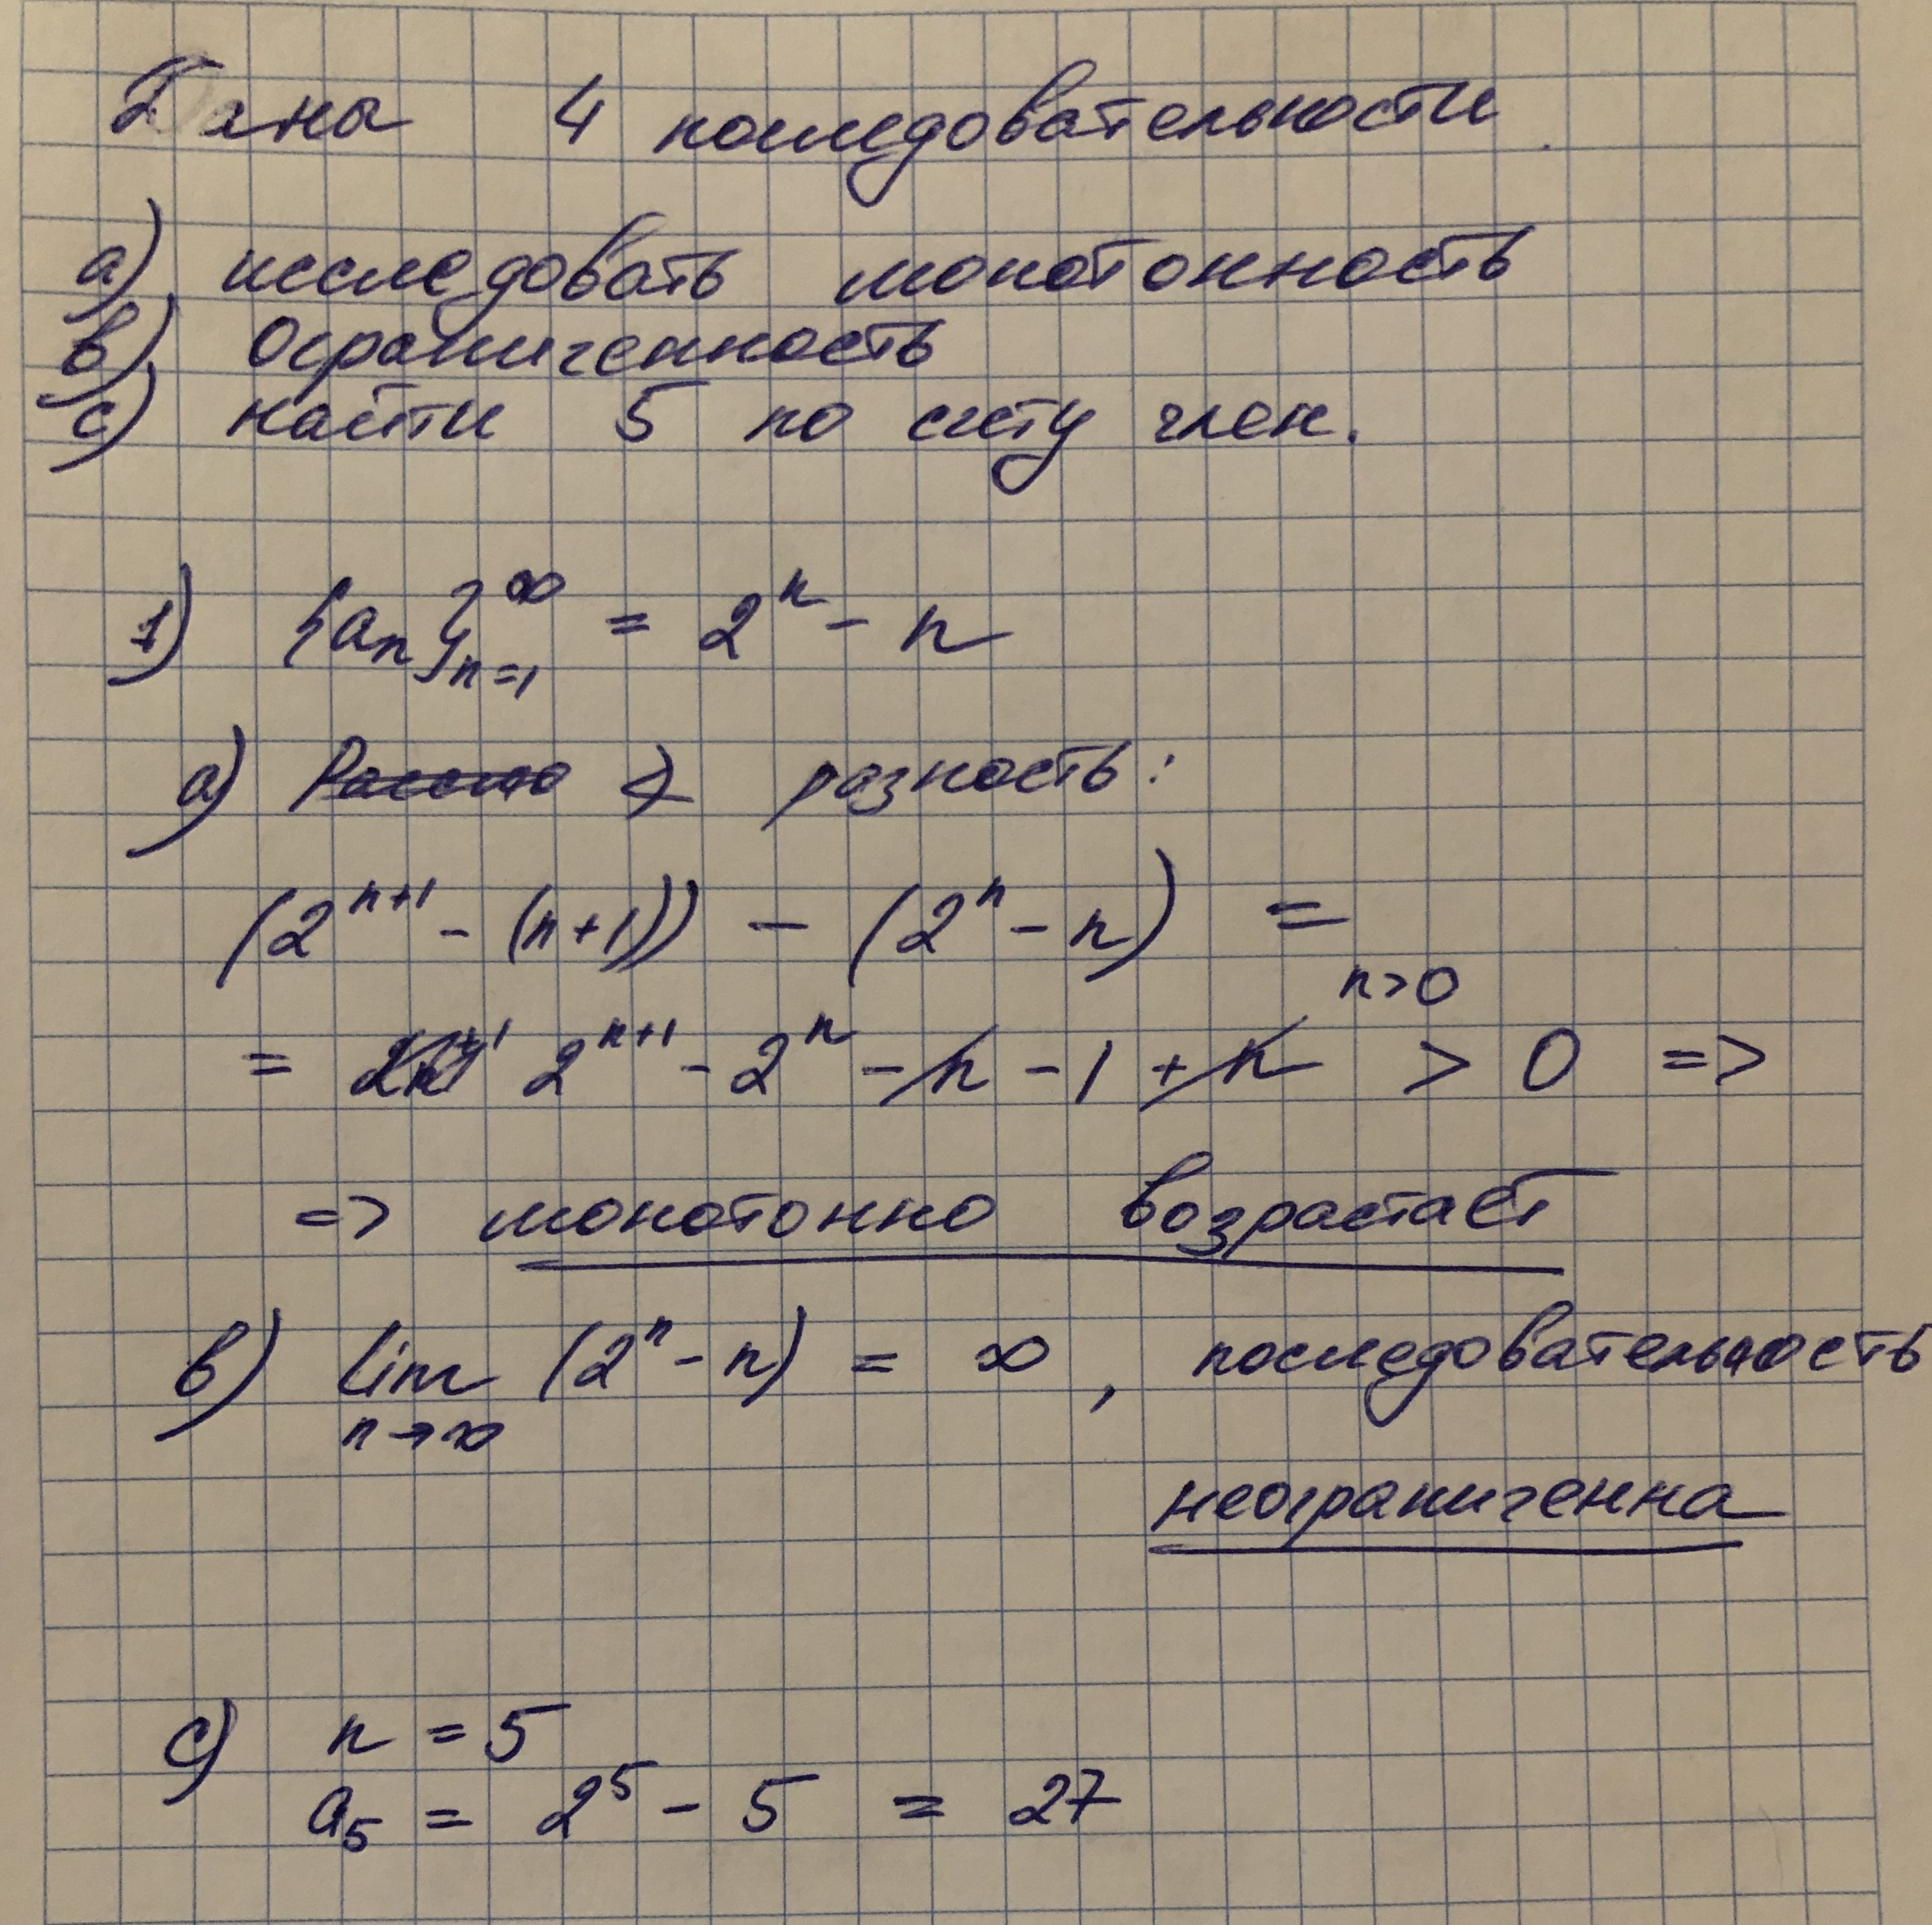 Даны 4 последовательности.
a) исследовать монотонность
b) ограниченность
c) найти 5 по счёту член.
1) {aₙ}ₙ₌₁^∞ = 2ⁿ - n
a) разность:
(2ⁿ⁺¹ - (n+1)) - (2ⁿ - n) =
n>0
= 2ⁿ⁺¹ - 2ⁿ - n - 1 + n > 0 =>
=> монотонно возрастает
b) lim (2ⁿ - n) = ∞, последовательность
n→∞
неограниченна
c) n = 5
a₅ = 2⁵ - 5 = 27